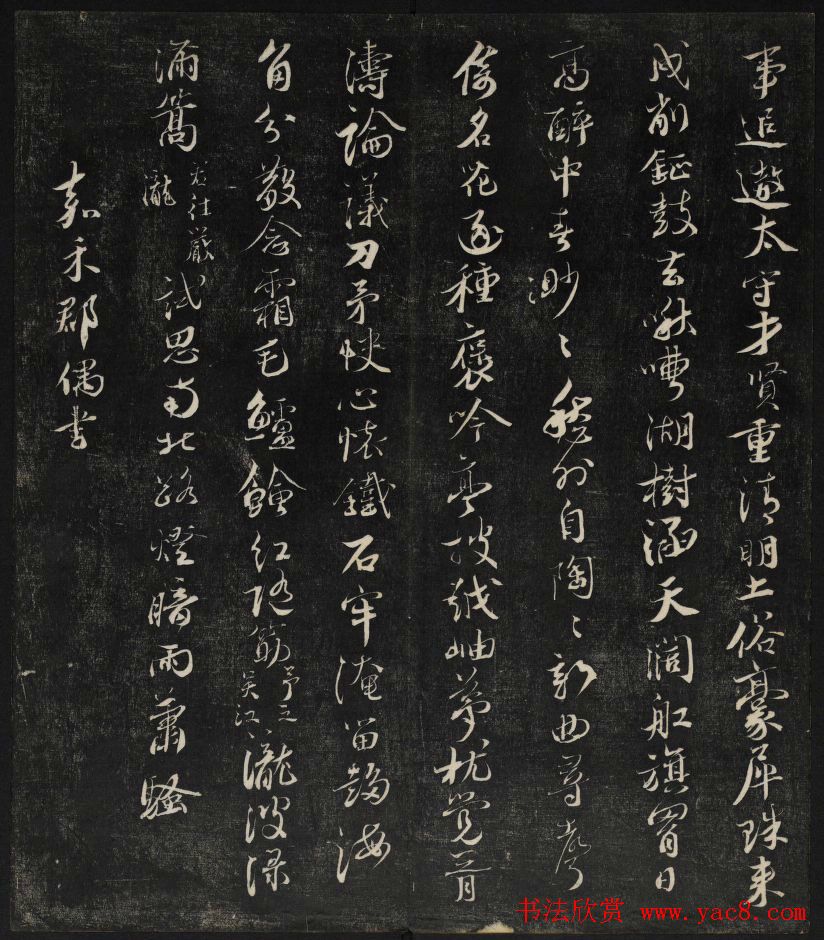 事追遨太守才賢重清明土俗豪犀珠來
戍削鉦鼓去啾嘈湖樹涵天闊舡旗罥日
高醉中春渺渺愁外自陶陶新曲尊聲
倚名花逐種褒吟亭披越岫夢枕覺胥
濤論議刀矛快心懷鐵石牢淹留趨海
角分散念霜毛鱸鱠紅隨筯予之吳江瀧波淥
滿篙君往嚴瀧試思南北路燈暗雨蕭騷
嘉禾郡偶書
书法欣赏 www.yac8.com